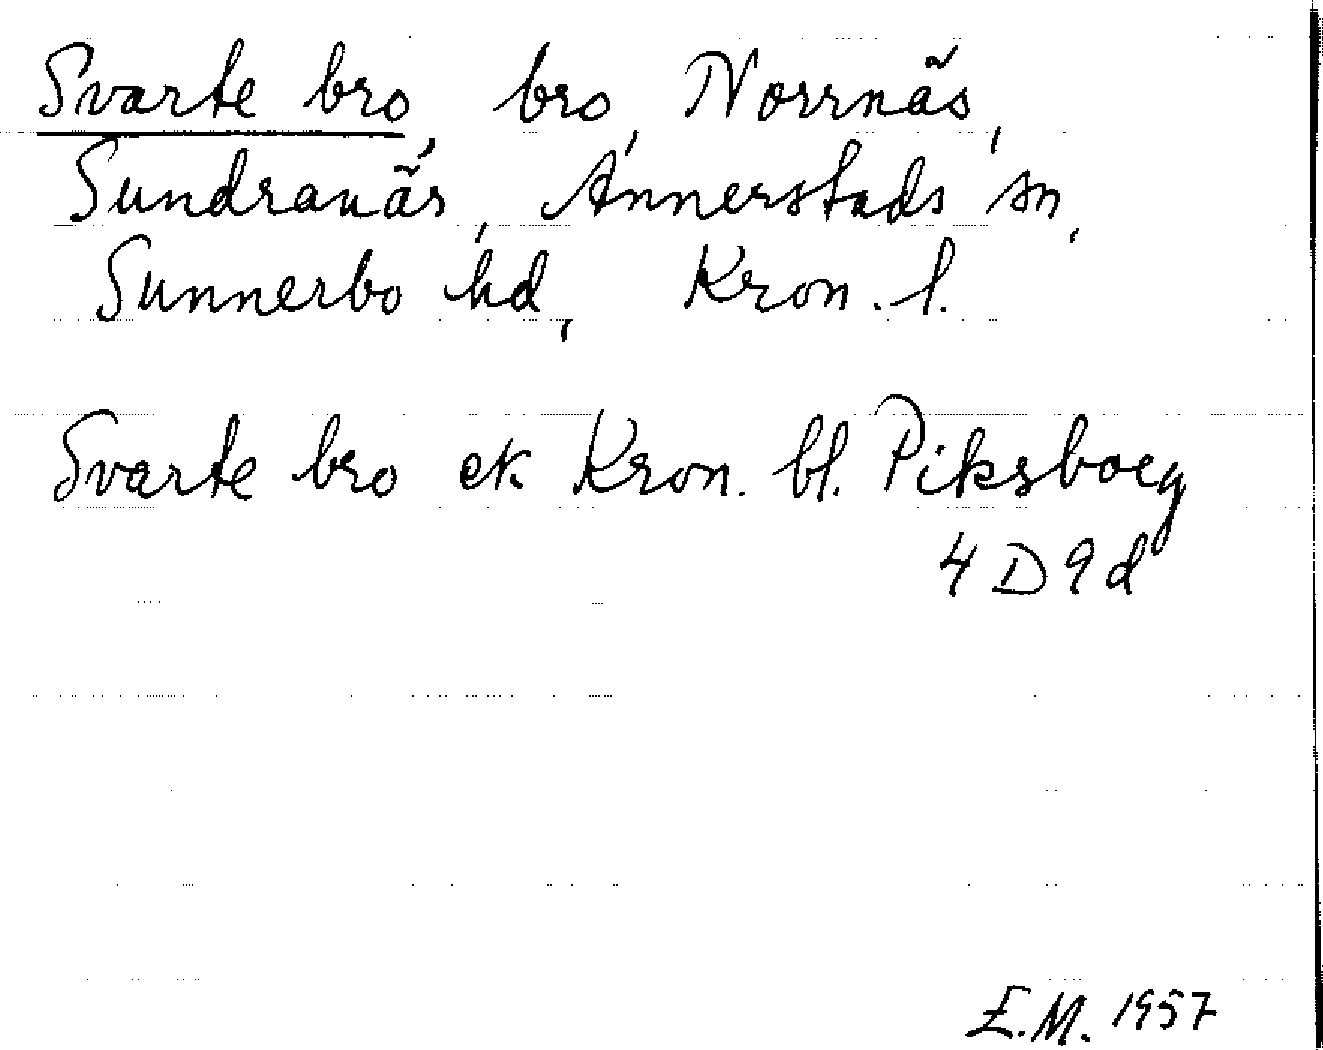 Svarte bro, bro, Norrnäs,
Sundranäs, Annerstads sn,
Sunnerbo hd, Kron. l.
Svarte bro ek Kron. bl. Piksborg
4 D 9 d
E.M. 1957